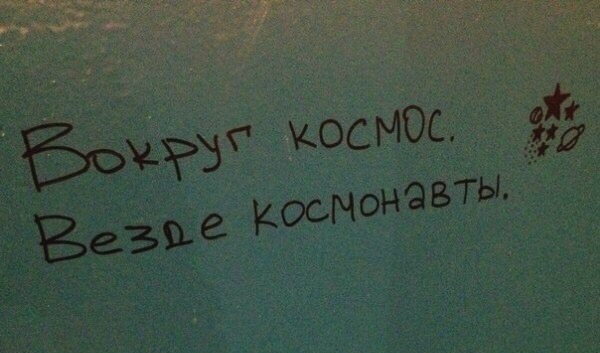 Вокруг космос.
Везде космонавты.